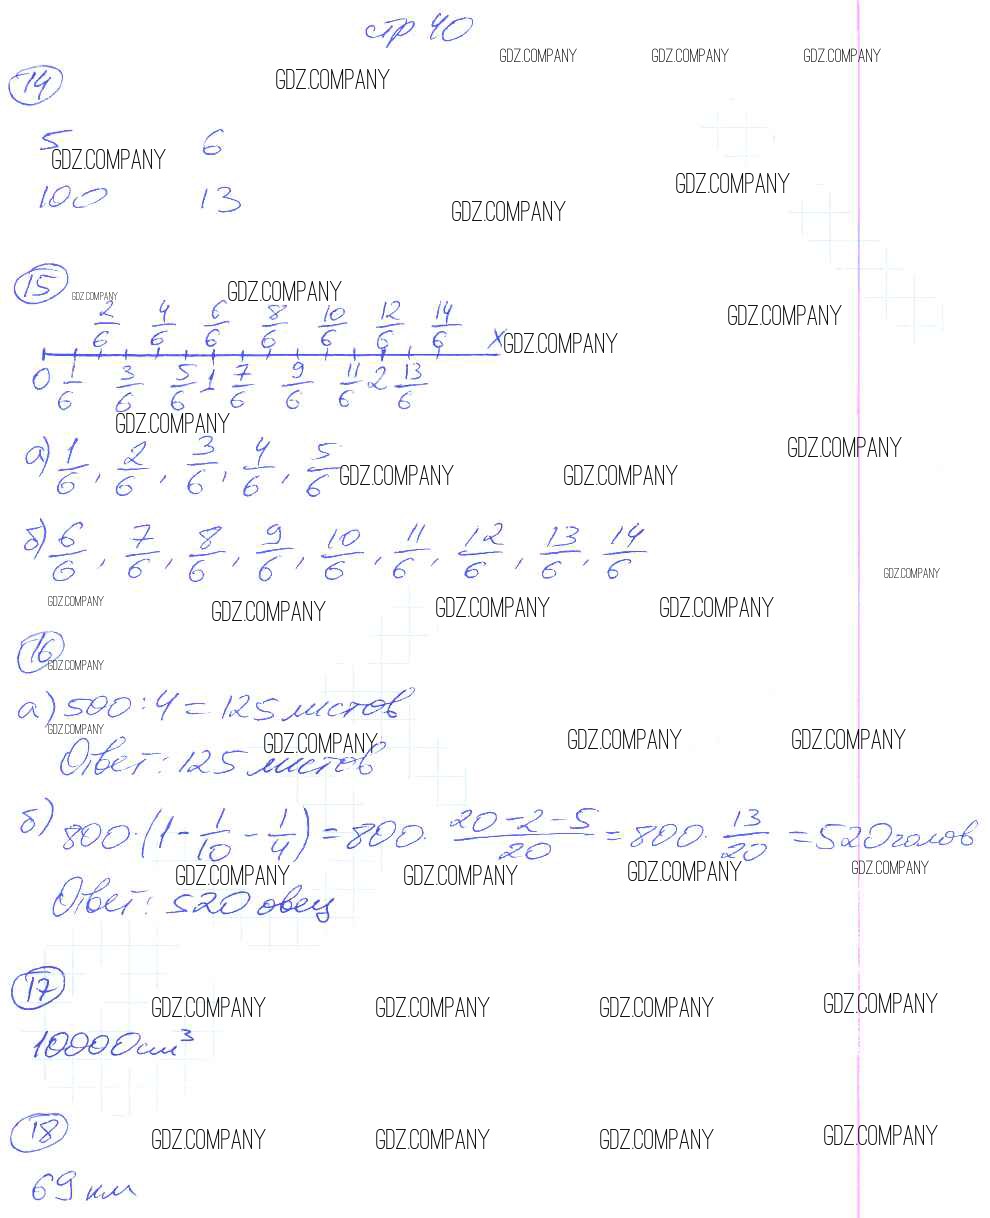 стр 40
GDZ.COMPANY GDZ.COMPANY GDZ.COMPANY
14 GDZ.COMPANY
5 6
GDZ.COMPANY
GDZ.COMPANY
100 13 GDZ.COMPANY
15 GDZ.COMPANY GDZ.COMPANY
2/6 4/6 6/6 8/6 10/6 12/6 14/6 x GDZ.COMPANY
GDZ.COMPANY
0 1/6 3/6 5/6 1 7/6 9/6 11/6 2 13/6
GDZ.COMPANY GDZ.COMPANY
а) 1/6, 2/6, 3/6, 4/6, 5/6 GDZ.COMPANY GDZ.COMPANY
б) 6/6, 7/6, 8/6, 9/6, 10/6, 11/6, 12/6, 13/6, 14/6
GDZ.COMPANY
GDZ.COMPANY GDZ.COMPANY GDZ.COMPANY GDZ.COMPANY
16 GDZ.COMPANY
а) 500 : 4 = 125 листов
GDZ.COMPANY GDZ.COMPANY GDZ.COMPANY GDZ.COMPANY
Ответ: 125 листов
б) 800·(1 - 1/10 - 1/4) = 800· (20-2-5)/20 = 800· 13/20 = 520 голов
GDZ.COMPANY GDZ.COMPANY GDZ.COMPANY GDZ.COMPANY
Ответ: 520 овец
17 GDZ.COMPANY GDZ.COMPANY GDZ.COMPANY GDZ.COMPANY
10000 см³
18 GDZ.COMPANY GDZ.COMPANY GDZ.COMPANY GDZ.COMPANY
69 км